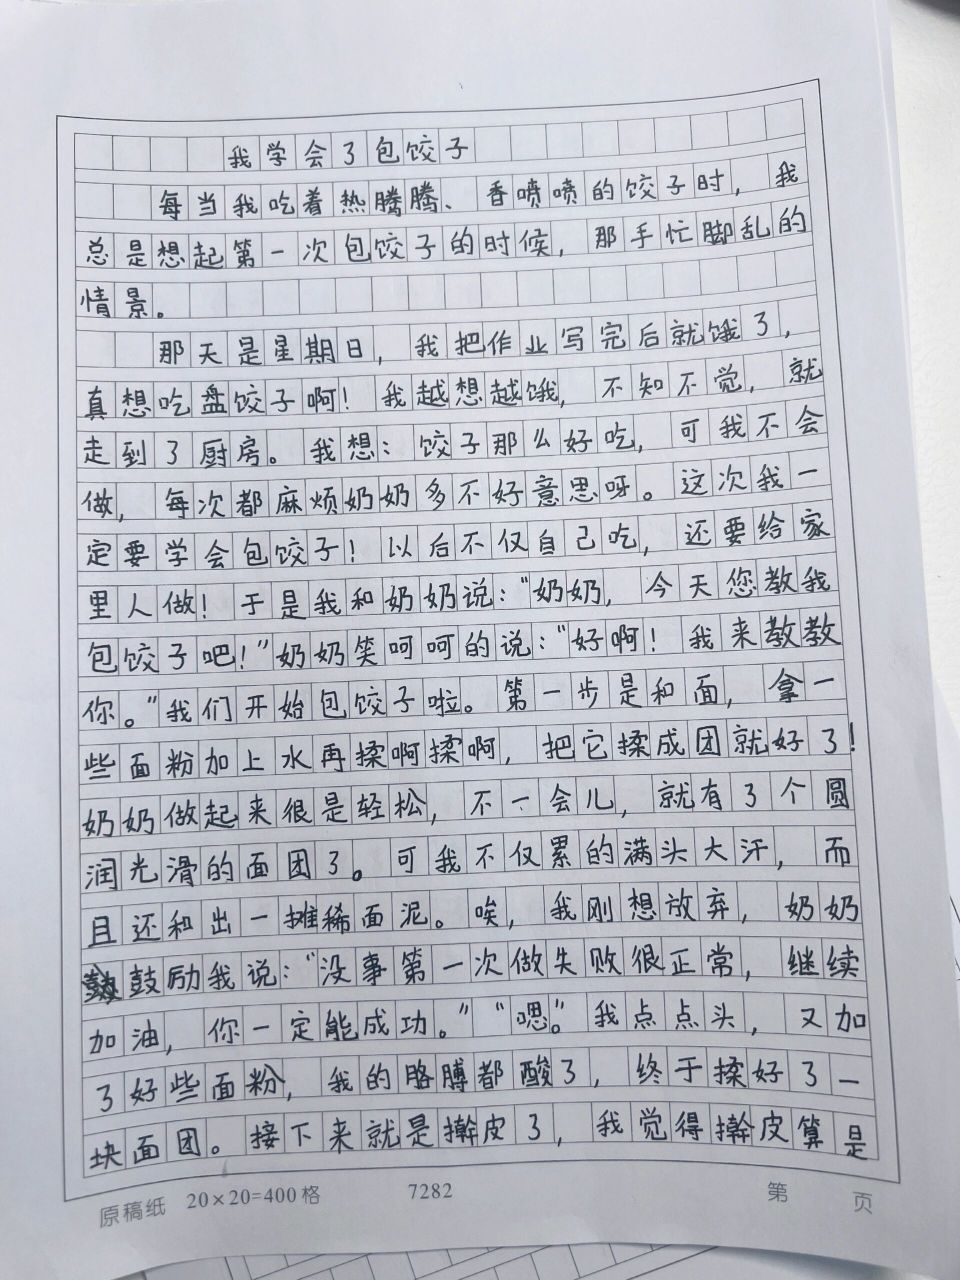 我学会了包饺子
每当我吃着热腾腾、香喷喷的饺子时，我
总是想起第一次包饺子的时候，那手忙脚乱的
情景。
那天是星期日，我把作业写完后就饿了，
真想吃盘饺子啊！我越想越饿，不知不觉，就
走到了厨房。我想：饺子那么好吃，可我不会
做，每次都麻烦奶奶多不好意思呀。这次我一
定要学会包饺子！以后不仅自己吃，还要给家
里人做！于是我和奶奶说：“奶奶，今天您教我
包饺子吧！”奶奶笑呵呵的说：“好啊！我来教教
你。”我们开始包饺子啦。第一步是和面，拿一
些面粉加上水再揉啊揉啊，把它揉成团就好了！
奶奶做起来很是轻松，不一会儿，就有了个圆
润光滑的面团了。可我不仅累的满头大汗，而
且还和出一摊稀面泥。唉，我刚想放弃，奶奶
鼓励我说：“没事第一次做失败很正常，继续
加油，你一定能成功。”“嗯。”我点点头，又加
了好些面粉，我的胳膊都酸了，终于揉好了一
块面团。接下来就是擀皮了，我觉得擀皮算是
原稿纸 20×20=400格 7282 第 页